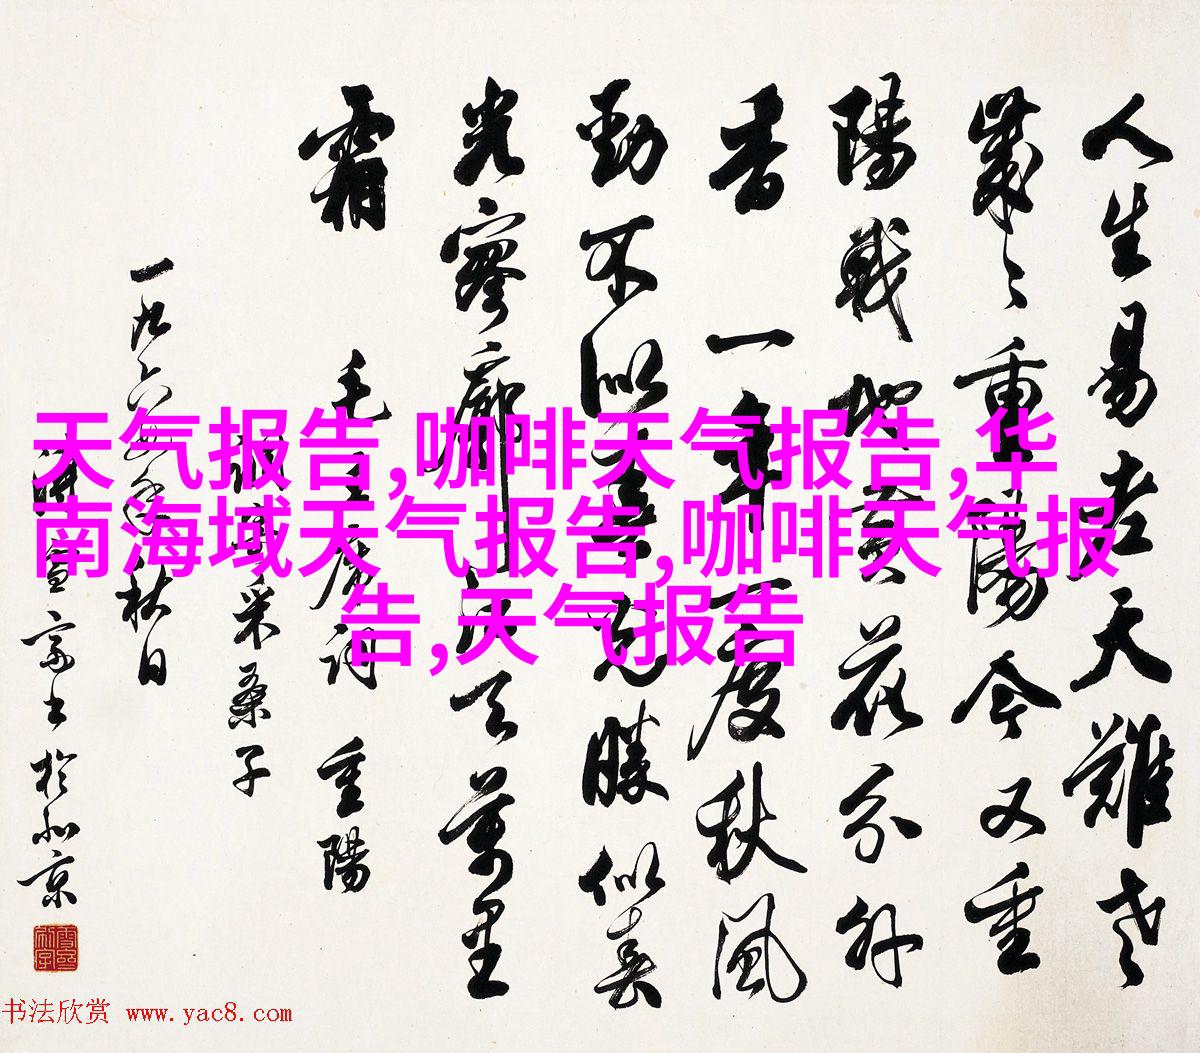 人生易老天難老
歲々重陽今又重
陽戰地黃花分外
香 一年一度秋風
勁不似春光勝似春
光寥廓江天萬里
霜 毛主席詞 重陽
調寄采桑子
一九六年秋日
書於北京
天气报告,咖啡天气报告,华
南海域天气报告,咖啡天气报
告,天气报告
书法欣赏 www.yac8.com